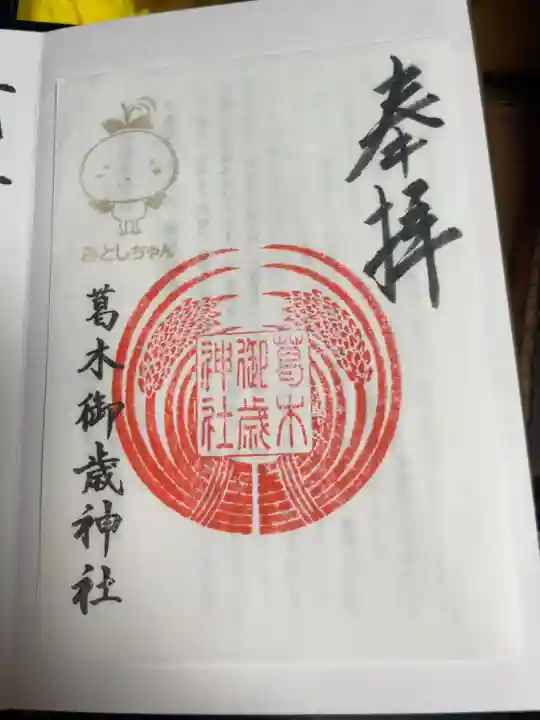 奉拝
葛木
御歳
神社
みとしちゃん
葛木御歳神社